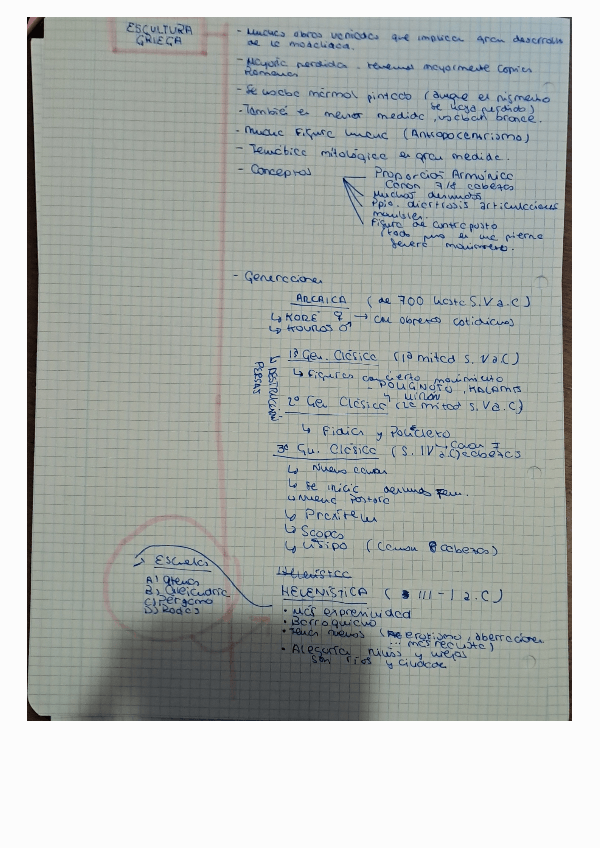 ESCULTURA
GRIEGA
- Muchas obras variadas que implica gran desarrollo
de la modalidad.
- Mayoría perdida. tenemos mayormente copias
Romanas
- Se usaba mármol pintado (aunque el pigmento
se haya perdido)
- También en menor medida, usaban bronce.
- Mucha Figura humana (Antropocentrismo)
- Temática mitológica en gran medida.
- Conceptos
Proporción Armónica
Canon 7/8 cabezas
Muchos desnudos
Ppio. diartrosis articulacciones
movibles.
Figura de contraposto
(todo peso en una pierna
genera movimiento.
- Generaciones
ARCAICA (de 700 hasta S. V a.C)
↳ KORÉ ♀ → con objetos cotidianos
↳ KOUROS ♂
1ª Gen. Clásica (1ª mitad S. V a.C)
↳ Figuras con cierto movimiento
- POLIGNOTO, KALAMIS
↳ MIRON
↳ DESTRUCCIÓN
PERSAS
2ª Gen Clásica (2ª mitad S. V a.C)
↳ Fidias y Policleto
↳ Canon 7
cabezas
3ª Gen. Clásica (S. IV a.C)
↳ Nuevo canon
↳ Se inicia desnudo Fem.
↳ Nueva Postura
↳ Praxiteles
↳ Scopas
↳ Lisipo (Canon 8 cabezas)
→ Escuelas
A) Atenas
B) Alejandría
C) Pérgamo
D) Rodas
Helenística
HELENÍSTICA (III - I a.C)
• Más expresividad
• Barroquismo
• Temas nuevos (erotismo, aberraciones
... más realista)
• Alegoría niños y viejos
son ríos y ciudades